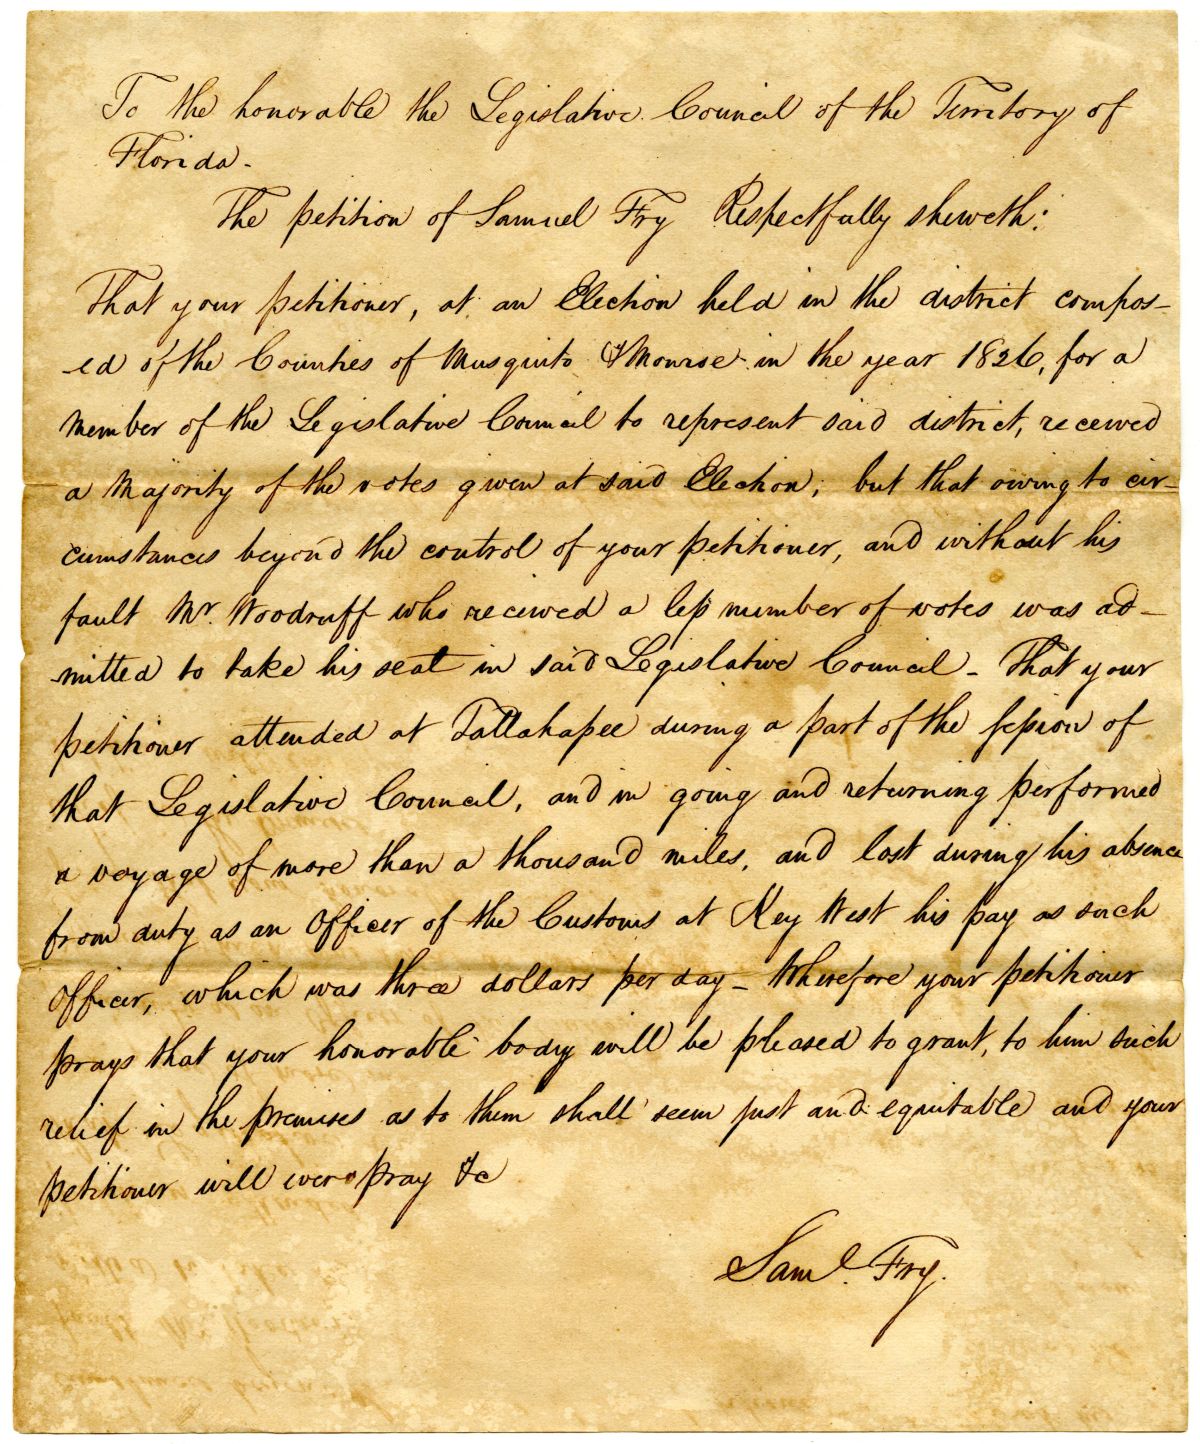 To the honorable the Legislative Council of the Territory of
Florida.
The petition of Samuel Fry Respectfully sheweth:
That your petitioner, at an Election held in the district compos-
-ed of the Counties of Musquito & Monroe in the year 1826, for a
member of the Legislative Council to represent said district, received
a Majority of the votes given at said Election; but that owing to cir-
cumstances beyond the control of your petitioner, and without his
fault Mr. Woodruff who received a less number of votes was ad-
-mitted to take his seat in said Legislative Council - That your
petitioner attended at Tallahassee during a part of the session of
that Legislative Council, and in going and returning performed
a voyage of more than a thousand miles, and lost during his absence
from duty as an Officer of the Customs at Key West his pay as such
Officer, which was three dollars per day - Wherefore your petitioner
prays that your honorable body will be pleased to grant, to him such
relief in the premises as to them shall seem just and equitable and your
petitioner will ever pray &c
Saml. Fry.